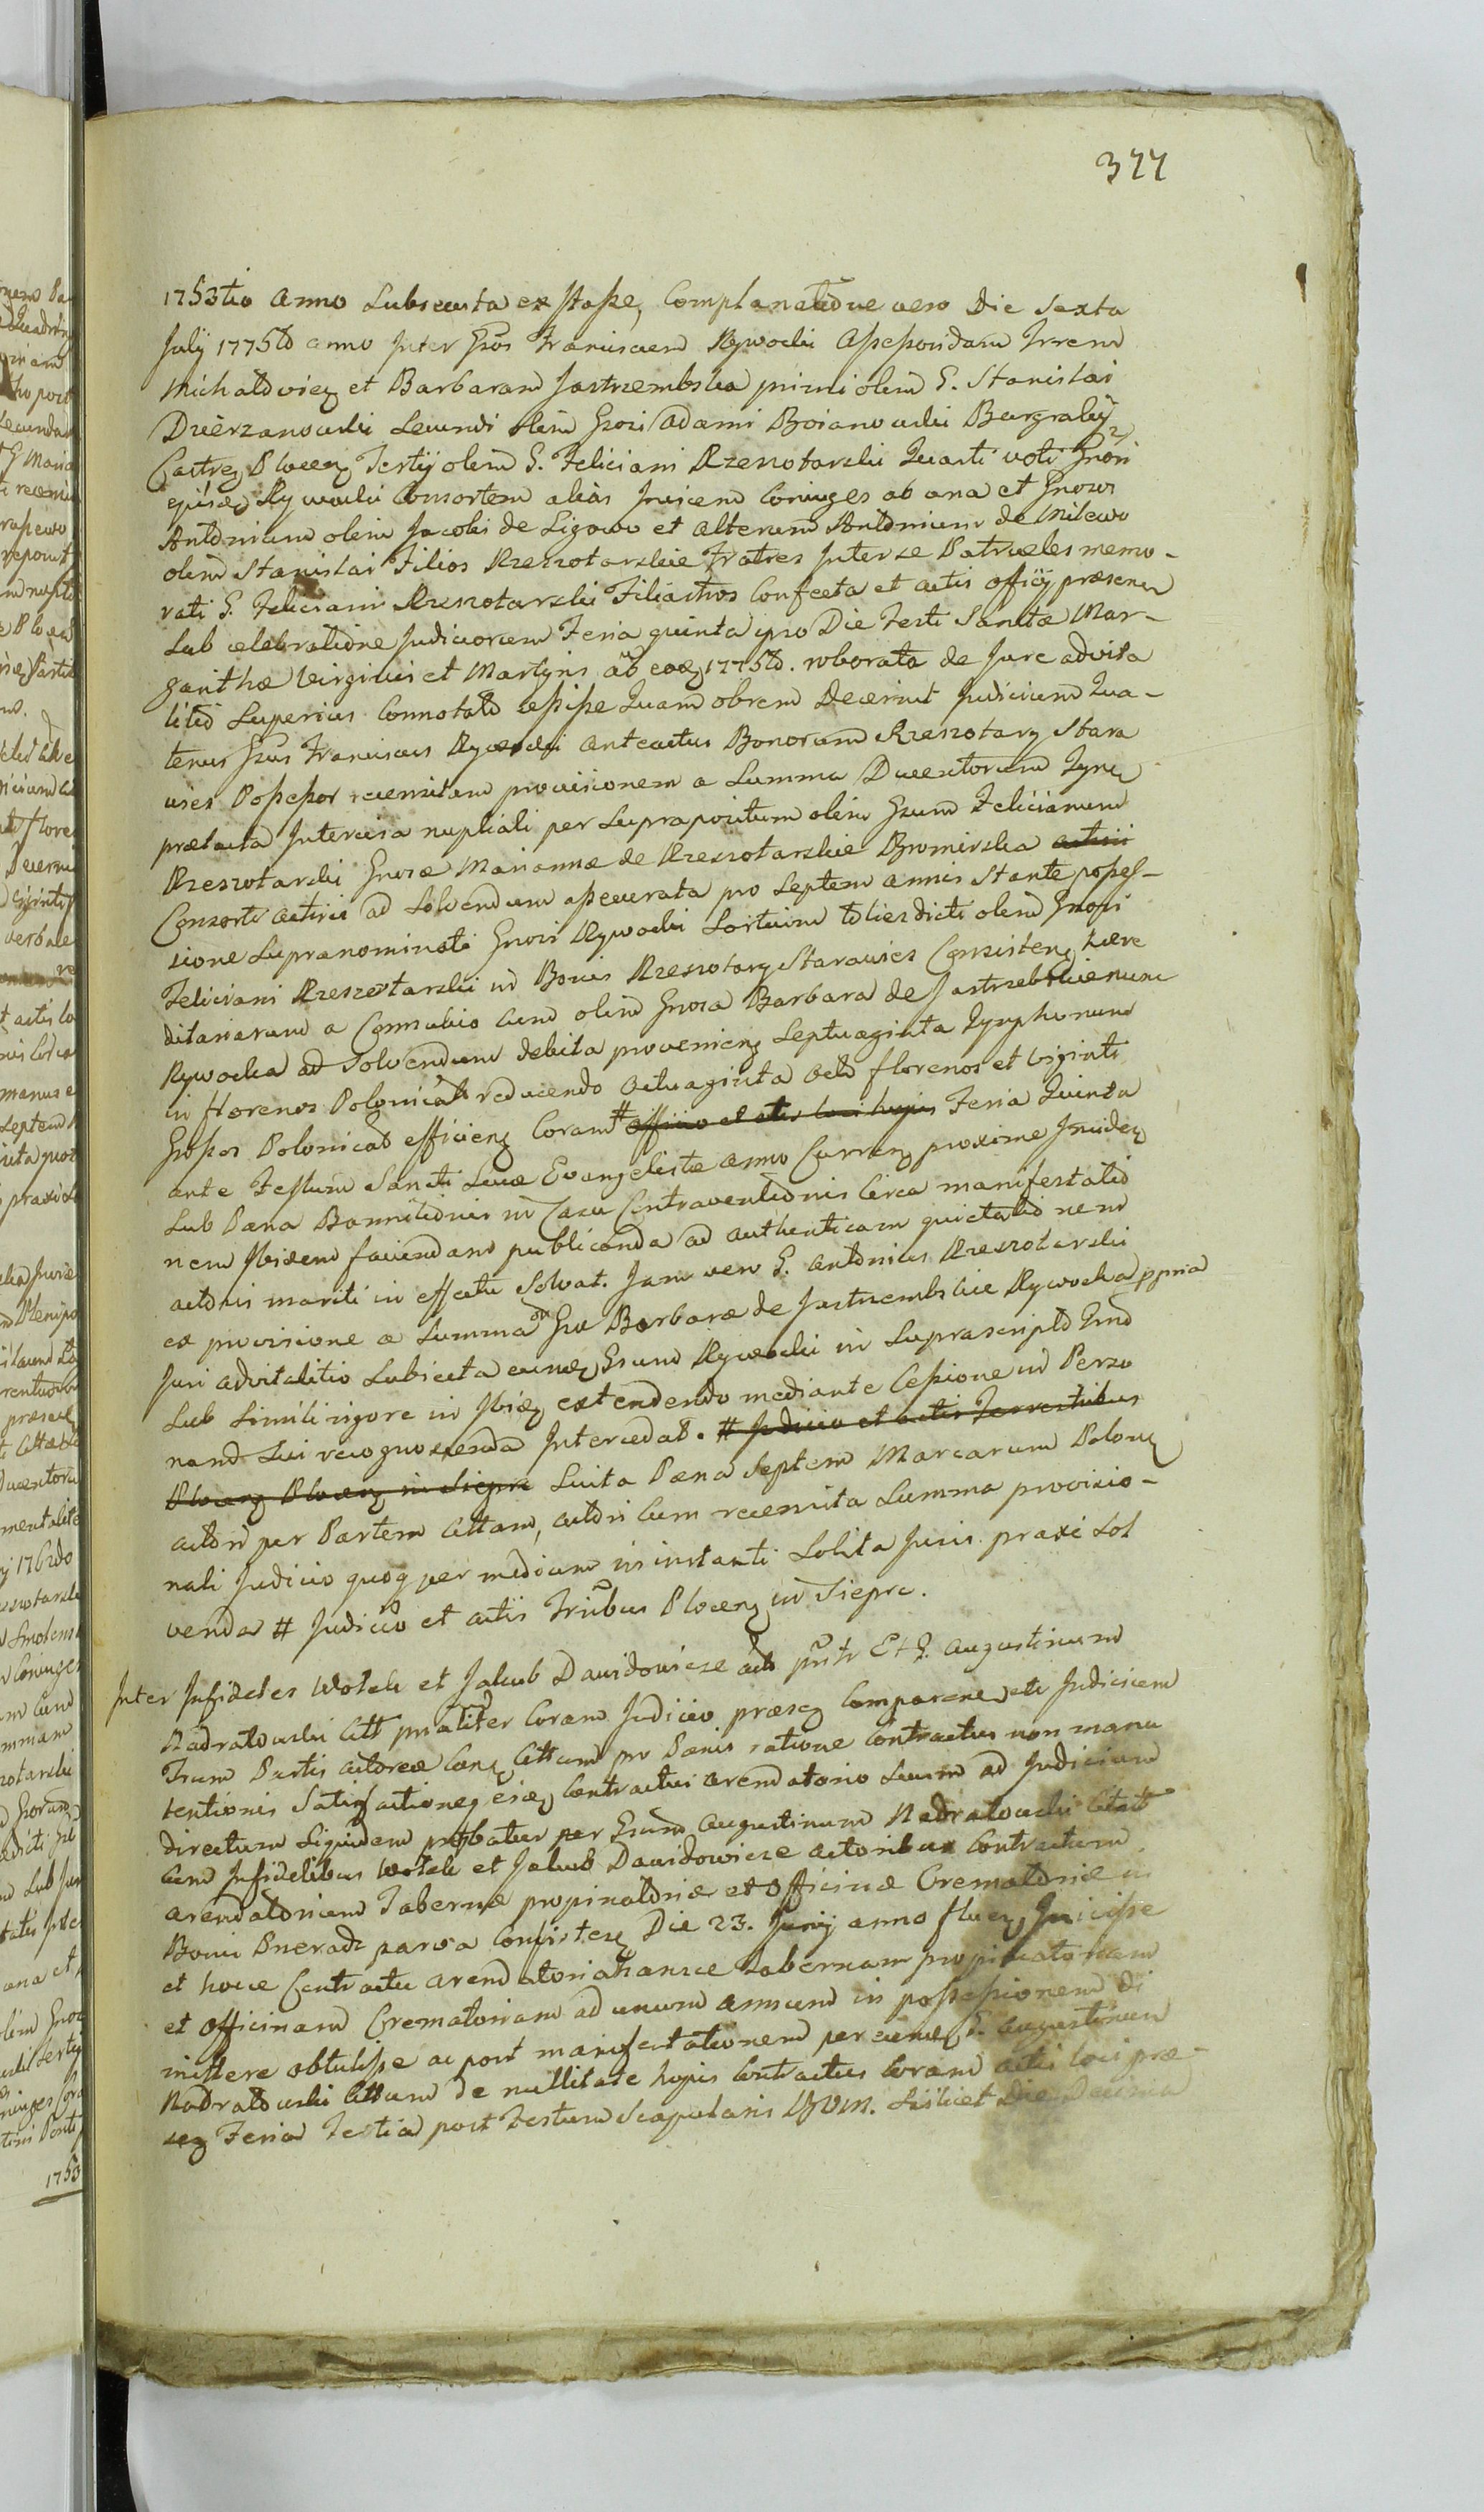 377
1753tio Anno Subsecuta exstasse, Complanatione vero Die Sexta
July 1775to anno Inter Gsos Franciscum Rywocki Assessoridam Trrem
Michaloviey et Barbaram Jastrzembska primi olim G. Stanislai
Dzierzanowski Secundi olim Gnosi Adami Boianowski Burgraby
Castrey Plocey Tertij olim G. Feliciani Rzeszotarski Quarti voti Gnosi
ejusdey Rywocki Consortem alias Invicem Coniuges ab una et Gnosos
Antonium olim Jacobi de Ligowo et Alterum Antonium de Milewo
olim Stanislai Filios Rzeszotarskie Fratres Inter se Patrueles memo-
rati G. Feliciani Rzeszotarski Filiastros Confecta et actis officij præseney
Sub celebratione Judiciorum Feria quinta ipso Die Festi Sanctæ Mar-
garithæ Virginis et Martyris ao eoq 1775to. roborata de Jure advita
litio Superius Connotato cessisse Quam obrem Decernit Judicium Qua-
tenus Gsus Franciscus Rywocki anteactus Bonorum Rzeszotary Stara
wies Possessor recensitam provisionem a Summa Ducentorum Tyney
prætacta Intercisa nuptiali per Supra positum olim Gsum Felicianum
Rzeszotarski Gnosæ Mariannæ de Rzeszotarskie Bromirska actrici
Consorti actrici ad Solvendum assecurata pro Septem annis Stante posses-
sione Supranominati Gnosi Rywocki Sortium toties dicti olim Gnosi
Feliciani Rzeszotarski in Bonis Rzeszotary Starawies Consistey hære
ditariarum a Connubio cum olim Gnosa Barbara de Jastrzebskie nunc
Rywocka ad Solvendum debita proveniey Septuaginta Tynphonum
in florenos Polonicales reducendo octuaginta octo florenos et viginti
Grossos Polonicales efficiey Coram # officio et actis loci hujus Feria Quinta
ante Festum Sancti Lucæ Evangelistæ anno Currey proxime Incidey
Sub Pæna Bannitionis in Casu Contraventionis Circa manifestatio
nem Ibidem faciendam publicanda ad authenticam quictatio nem
actoris mariti in effectu Solvat. Jam vero G. Antonius Rzeszotarski
ex provisione a Summa Gsæ Barbaræ de Jastrzembskie Rywocka ppria
Juri advitalitio Subiecta eumdey Gsum Rywocki in Suprascripto Gno
Sub Simili rigore in Ibidey extendendo mediante Cessione in Perso
nam Sui recognoscenda Intercedat. # Judicio et actis Terrestribus
Plocey Plocey in Sieprc Luita Pæna Septem Marcarum Poloney
actori per Partem Cittam, actori cum recensita Summa provisio-
nali Judicio quoq per medium in instanti Solita Juris praxi Sol
venda # Judicio et actis Tribus Plocey in Sieprc.
Inter Infideles Wolek et Jakub Dawidowicze act pntr Et G. Augustinum
Nadratowski Citt pnaliter Coram Judicio præsey Comparenes etc Judicium
Trum Partis actoreæ Cony Cittum pro Pænis ratione Contractus non manu
tentionis Satisfactioney ejusdey Contractui Arendatorio Suum ad Judicium
directum Siquidem probatur per Gsum Augustinum Nadratowski Cittatu
Cum Infidelibus Wolek et Jakub Dawidowicze actoribus Contractum
arendatorium Tabernæ propinatoriæ et Officinæ Crematoriæ in
Bonis Sneradz parva Consistey Die 23. Junij anno fluey Inicisse
et hocce Contractu Arendatoria transce Tabernam propinatoriam
et Officinam Crematoriam ad unum annum in possessionem di
mittere obtulisse ac post manifestationem per eumdey G. Augustinum
Nadratowski Cittum de nullitate hujus Contractus Coram actis loci præ-
sey Feria Tertia post Festum Scapularis BVM. Scilicet Die Decima